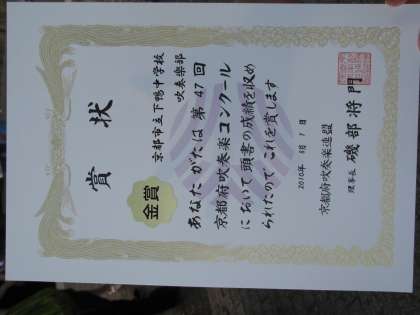 賞状
京都市立下鴨中学校
吹奏楽部
金賞
あなたがたは第47回
京都府吹奏楽コンクール
において頭書の成績を収め
られたのでこれを賞します
2010年
京都府吹奏楽連盟
理事長 磯部将門